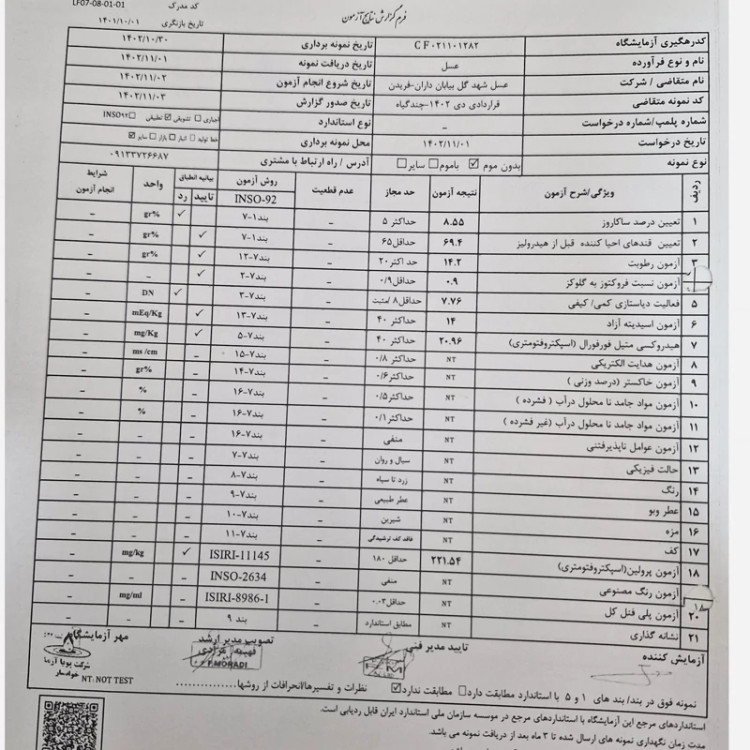 LF07-08-01-01 کد مدرک
فرم گزارش نتایج آزمون
تاریخ بازنگری ۱۴۰۱/۱۰/۰۱
کدرهگیری آزمایشگاه CF۰۲۱۱۰۱۲۸۲ تاریخ نمونه برداری ۱۴۰۲/۱۰/۳۰
نام و نوع فرآورده عسل تاریخ دریافت نمونه ۱۴۰۲/۱۱/۰۱
نام متقاضی / شرکت عسل شهد گل بیابان داران-فریدن تاریخ شروع انجام آزمون ۱۴۰۲/۱۱/۰۲
کد نمونه متقاضی قراردادی دی ۱۴۰۲-چندگیاه تاریخ صدور گزارش ۱۴۰۲/۱۱/۰۳
شماره پلمپ/شماره درخواست – نوع استاندارد اجباری تشویقی تطبیقی INSO۹۲
تاریخ درخواست ۱۴۰۲/۱۱/۰۱ محل نمونه برداری خط تولید انبار بازار سایر
نوع نمونه بدون موم باموم سایر آدرس / راه ارتباط با مشتری ۰۹۱۳۳۷۲۶۶۸۷
ردیف ویژگی/شرح آزمون نتیجه آزمون حد مجاز عدم قطعیت روش آزمون INSO-92 بیانیه انطباق تایید رد واحد شرایط انجام آزمون
۱ تعیین درصد ساکاروز ۸.۵۵ حداکثر ۵ – بند۱-۷ ✓ gr% –
۲ تعیین قندهای احیا کننده قبل از هیدرولیز ۶۹.۴ حداقل۶۵ – بند۱-۷ ✓ gr% –
۳ آزمون رطوبت ۱۴.۲ حد اکثر ۲۰ – بند۷-۱۲ ✓ gr% –
آزمون نسبت فروکتوز به گلوکز ۰.۹ حداقل۰/۹ – بند۷-۲ ✓ – –
۵ فعالیت دیاستازی کمی/ کیفی ۷.۷۶ حداقل۸ /مثبت – بند۷-۳ ✓ DN –
۶ آزمون اسیدیته آزاد ۱۴ حداکثر ۴۰ – بند۷-۱۳ ✓ mEq/Kg –
۷ هیدروکسی متیل فورفورال (اسپکتروفتومتری) ۲۰.۹۶ حداکثر ۴۰ – بند۷-۵ ✓ mg/Kg –
۸ آزمون هدایت الکتریکی NT حداکثر ۰/۸ – بند۷-۱۵ – ms /cm –
۹ آزمون خاکستر (درصد وزنی ) NT حداکثر ۰/۶ – بند۷-۱۴ – gr% –
۱۰ آزمون مواد جامد نا محلول درآب ( فشرده ) NT حداکثر ۰/۵ – بند۷-۱۶ – % –
۱۱ آزمون مواد جامد نا محلول درآب (غیر فشرده ) NT حداکثر ۰/۱ – بند۷-۱۶ – % –
۱۲ آزمون عوامل ناپذیرفتنی NT منفی – بند۷-۱۶ – – –
۱۳ حالت فیزیکی NT سیال و روان – بند۷-۷ – – –
۱۴ رنگ NT زرد تا سیاه – بند۷-۸ – – –
۱۵ عطر وبو NT عطر طبیعی – بند۷-۹ – – –
۱۶ مزه NT شیرین – بند۷-۱۰ – – –
۱۷ کف NT فاقد کف ترشیدگی – بند۷-۱۱ – – –
۱۸ آزمون پرولین(اسپکتروفتومتری) ۲۲۱.۵۴ حداقل ۱۸۰ – ISIRI-11145 ✓ mg/kg –
آزمون رنگ مصنوعی NT منفی – INSO-2634 – – –
۲۰ آزمون پلی فنل کل NT حداقل۰.۰۳ – ISIRI-8986-1 – mg/ml –
۲۱ نشانه گذاری NT مطابق استاندارد – بند ۹ – – –
آزمایش کننده تایید مدیر فنی تصویب مدیر ارشد مهر آزمایشگاه
فهیمه مرادی
F.MORADI
شرکت پویا آزما
خوانسار
NT: NOT TEST
نمونه فوق در بند/ بند های ۱ و ۵ با استاندارد مطابقت دارد مطابقت ندارد نظرات و تفسیرها/انحرافات از روشها
استانداردهای مرجع این آزمایشگاه با استانداردهای مرجع در موسسه سازمان ملی استاندارد ایران قابل ردیابی است.
مدت زمان نگهداری نمونه های ارسال شده تا ۳ ماه بعد از دریافت نمونه می باشد.